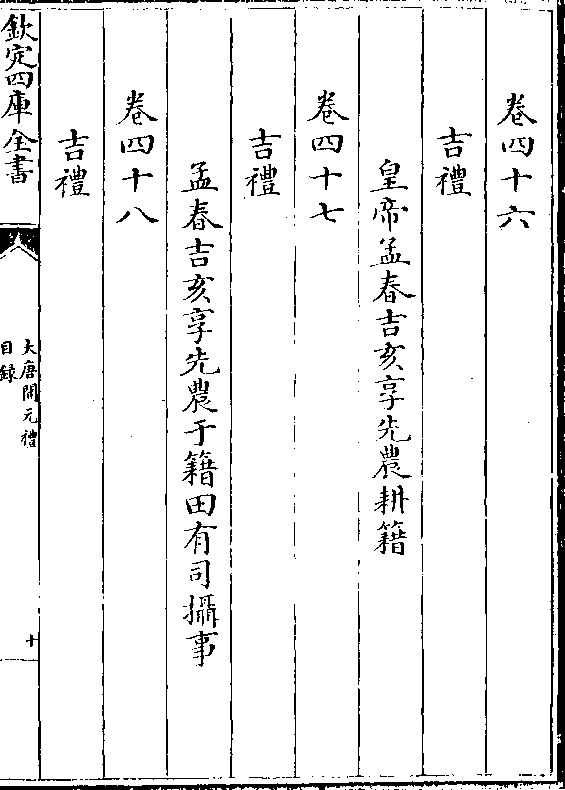 卷四十六
吉禮
皇帝孟春吉亥享先農耕籍
卷四十七
吉禮
孟春吉亥享先農于籍田有司攝事
卷四十八
吉禮
欽定四庫全書
大唐開元禮
目錄
十